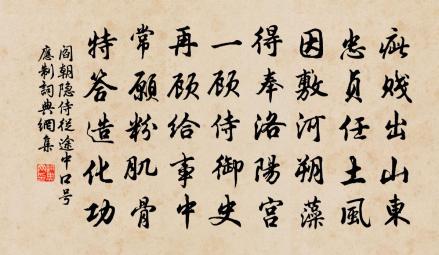 疵賤出山東
忠貞任土風
因敷河朔藻
得奉洛陽宮
一顧侍御史
再顧給事中
常願粉肌骨
特答造化功
閻朝隐侍從途中口号
應制詞典網集